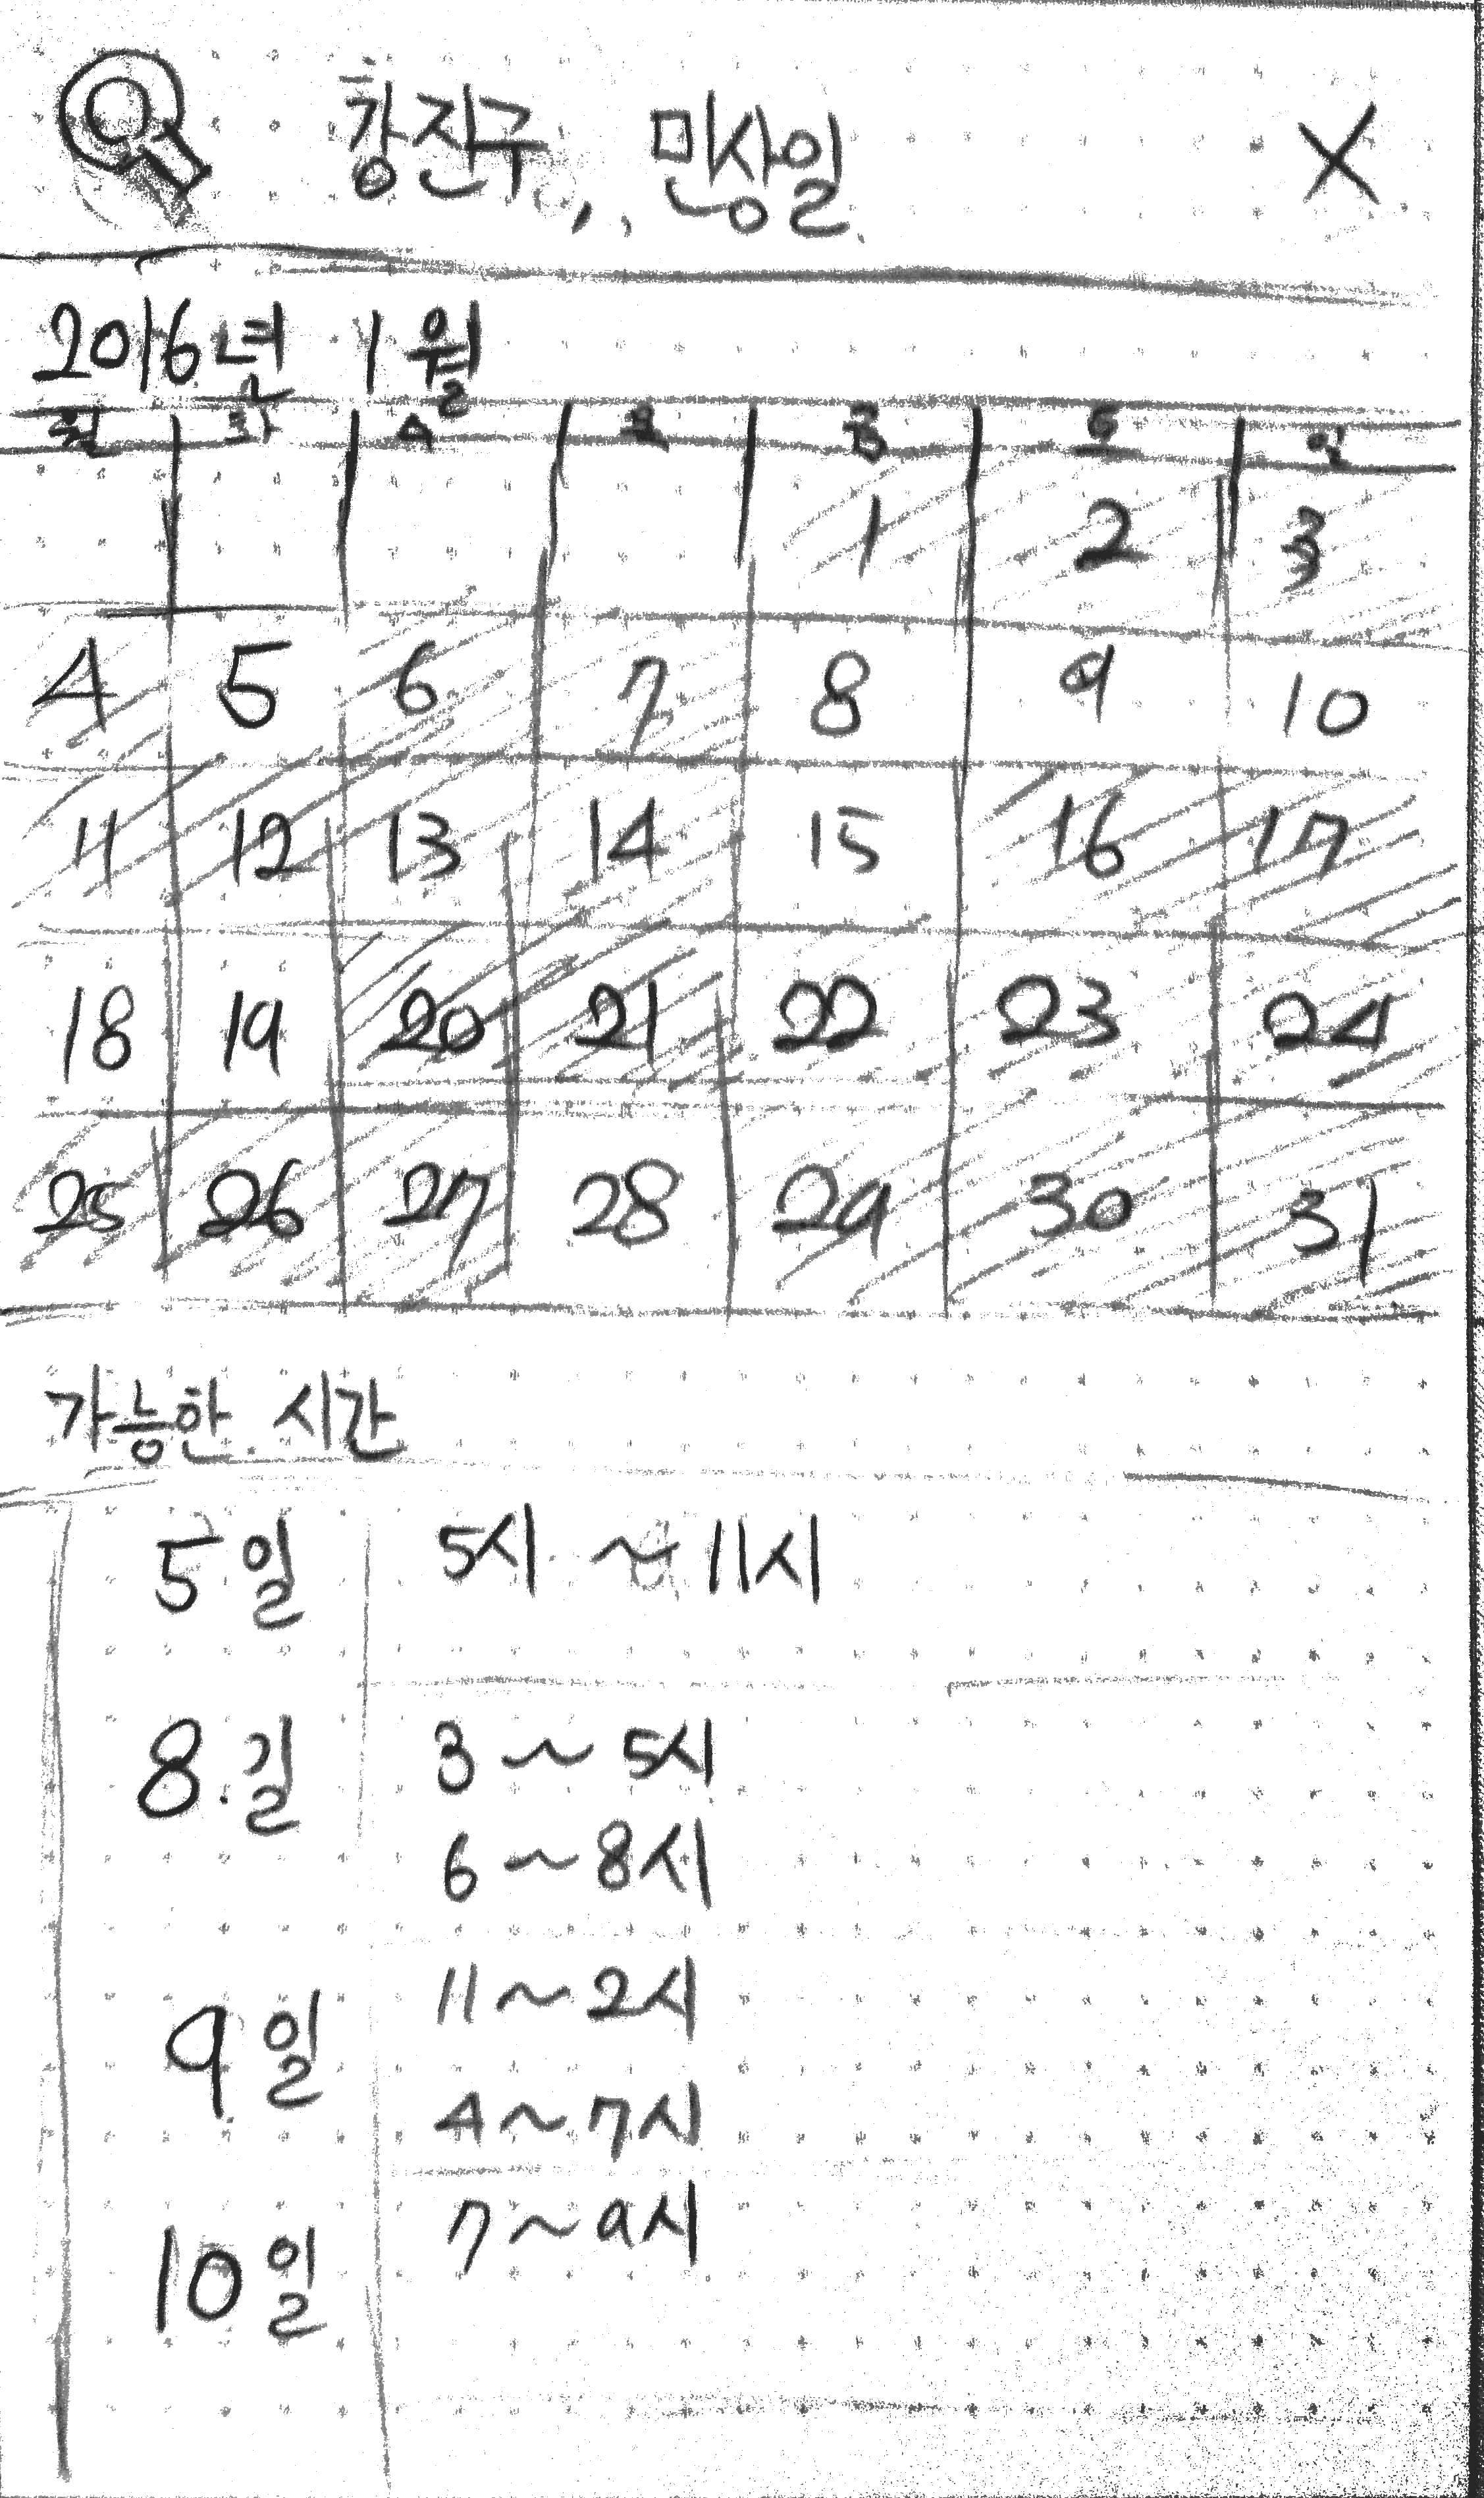 강진구, 민상일 X
2016년 1월
월 화 수 목 금 토 일
1 2 3
4 5 6 7 8 9 10
11 12 13 14 15 16 17
18 19 20 21 22 23 24
25 26 27 28 29 30 31
가능한 시간
5일 5시 ~ 11시
8일 3 ~ 5시
6 ~ 8시
9일 11 ~ 2시
4 ~ 7시
10일 7 ~ 9시